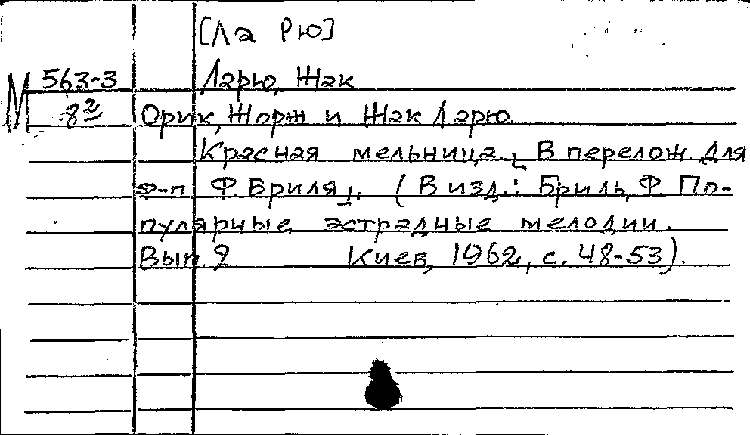 [Ла Рю]
М 563-3 Ларю, Жак
8² Орик, Жорж и Жак Ларю.
Красная мельница. [В перелож. для
ф-п Ф. Бриля]. (В изд.: Бриль, Ф. По-
пулярные эстрадные мелодии.
Вып. 9 Киев, 1962, с. 48-53).